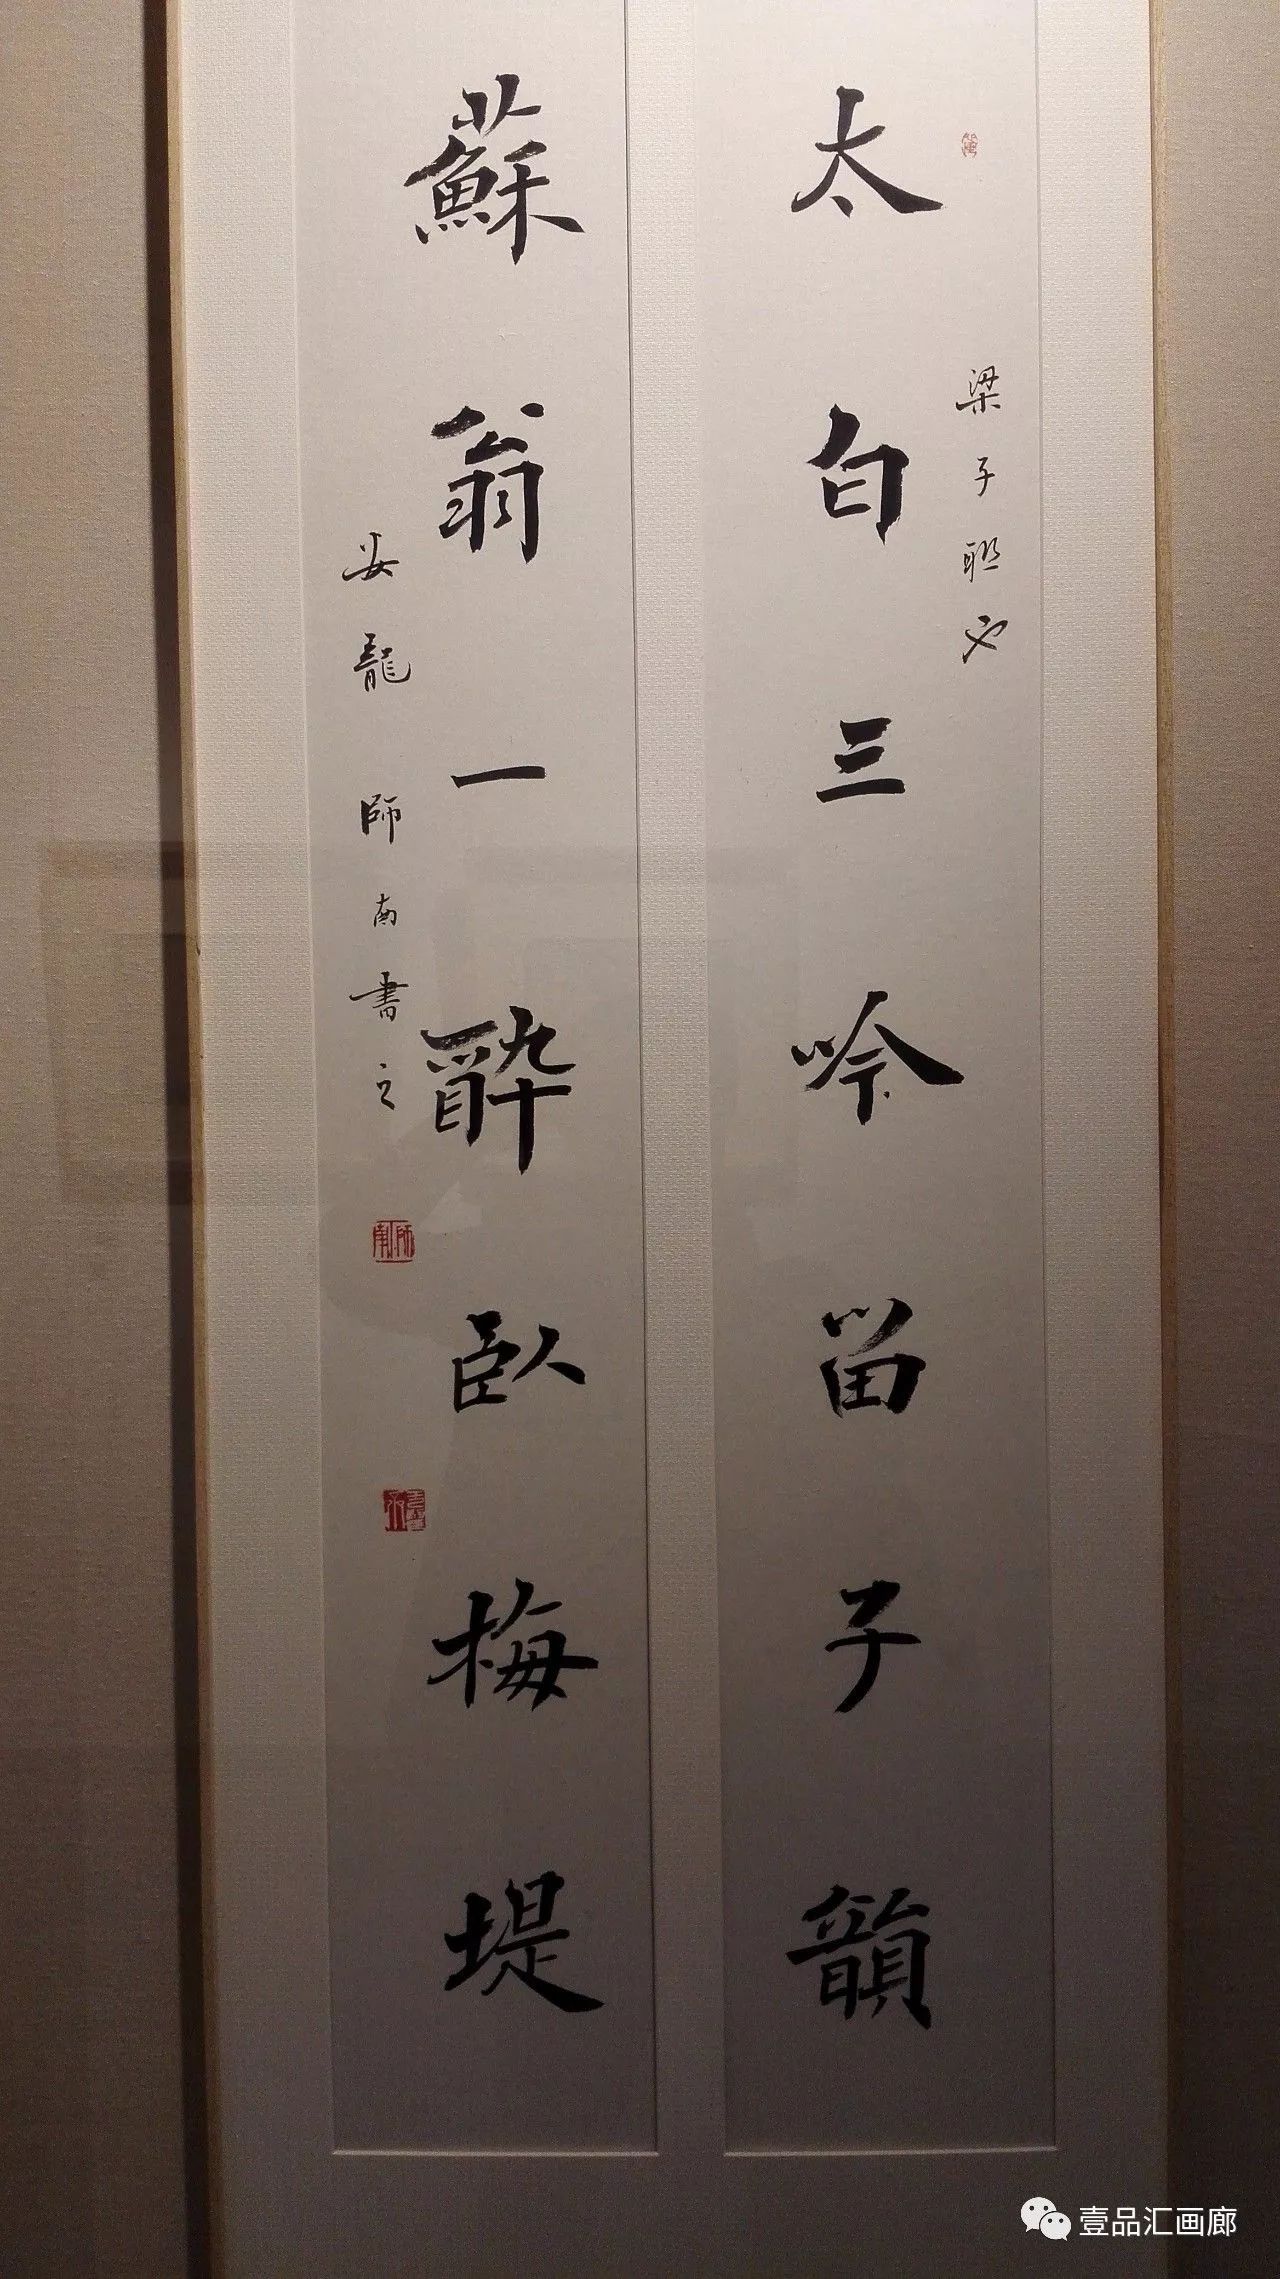 太白三吟留子韻
梁子聯也
蘇翁一醉臥梅堤
安龍師南書之
師南
壹品汇画廊